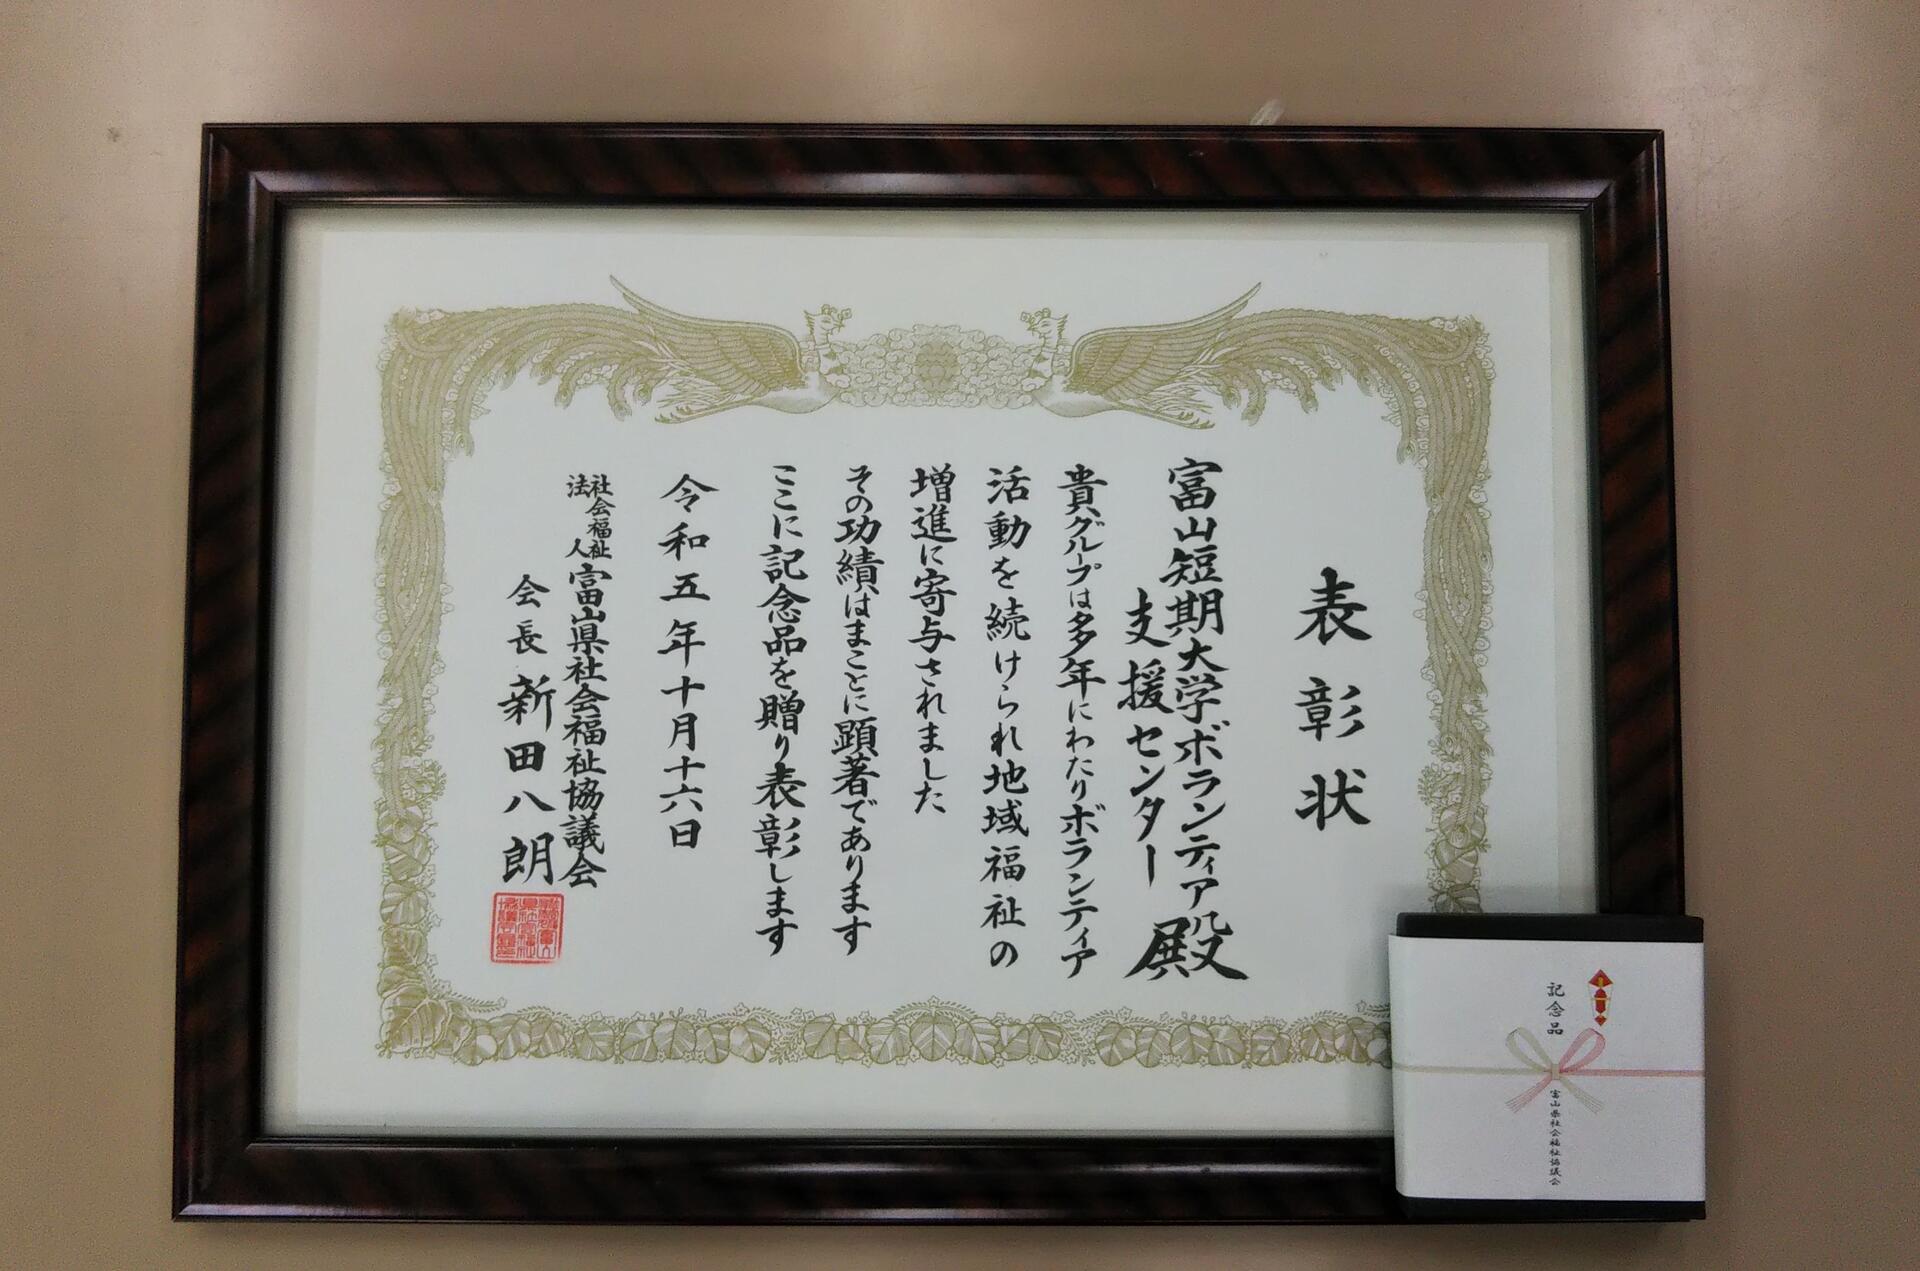 表彰状
富山短期大学ボランティア
支援センター 殿
貴グループは多年にわたりボランティア
活動を続けられ地域福祉の
増進に寄与されました
その功績はまことに顕著であります
ここに記念品を贈り表彰します
令和五年十月十六日
社会福祉
法人
富山県社会福祉協議会
会長 新田八朗
記念品
富山県社会福祉協議会